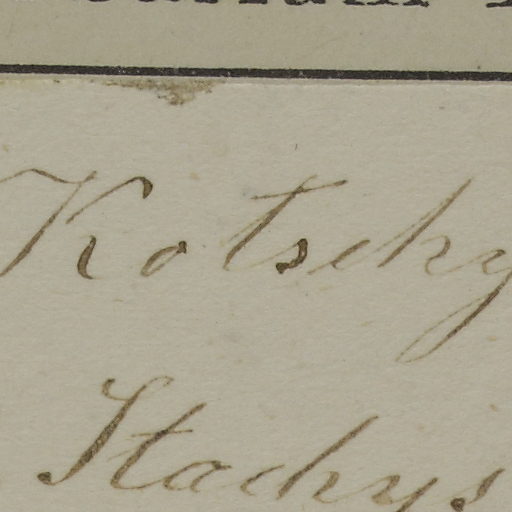 Kotschy
Stachys